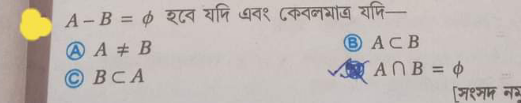 A – B = ϕ হবে যদি এবং কেবলমাত্র যদি—
Ⓐ A ≠ B Ⓑ A ⊂ B
Ⓒ B ⊂ A A ∩ B = ϕ